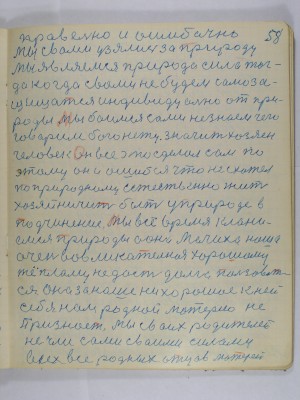 58
правелно и ошибочно
мы с вами узялись за природу
мы являемся природа сила тог-
да когда с вами не будем самоза-
щищатся индивидуально от при-
роды Мы боимся сами не знаем чего
говорим бога нету, значит хозяен
человек Он все это сделал сам по
этому он ошибся что не схотел
по природному естественно жить
хозяйничить быть у природе в
подчинение Мы всё время клани-
емся природы а она Мачиха наша
очен вовликательная хорошому
тёплому не дост дома
ся она за наше нехорошое к ней
себя нам родной матерью не
признает, мы своих родителей
сами своими силами
всех все родных отцов матерей